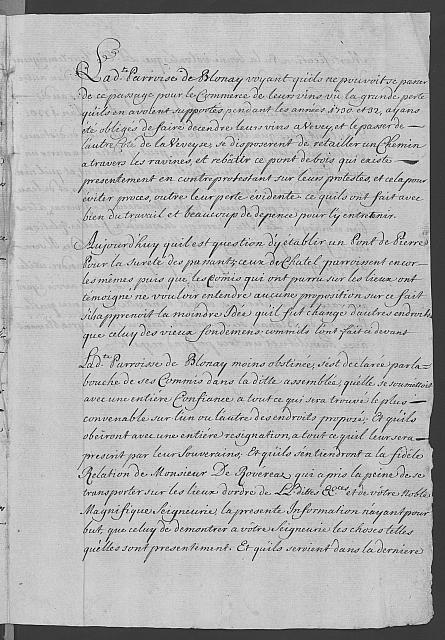 Lad.te Parroise de Blonay voyant qu'ils ne pouvoit se passer
de ce passage pour le Commerce de leurs vins vû la grande perte
qu'ils en avoient supportés pendant les années 1730 et 32, ayans
été obligés de faire décendre leurs vins a Vevey, et le passer de
l'autre Côté de la Veveyse; se disposerent de retailler un Chemin
a travers les ravines, et rebâtir ce pont de bois qui existe
presentement en contreprotestant sur leurs protestes, et cela pour
éviter procès, outre leur perte évidente ce qu'ils ont fait avec
bien du travail et beaucoup de dépence pour l'y entretenir.
Aujourd'huy qu'il est question d'y établir un Pont de Pierre
Pour la sureté des passants; ceux de Châtel parroissent encor
les mêmes puis que les Comis qui ont parru sur les lieux ont
témoigné ne vouloir entendre aucune proposition sur ce fait
s'ils apprenoit la moindre Idée qu'il fut changé d'autres endroits
que celuy des vieux fondemens commils l'ont fait ci devant
Lad.te Parroisse de Blonay moins obstinée, s'est déclarée par la
bouche de ses Commis dans la ditte assemblée, qu'elle se soumettoit
avec une entière Confiance a tout ce qui sera trouvé le plus
convenable sur l'un ou l'autre des endroits proposé; Et qu'ils
obeiront avec une entière resignation, a tout ce qui leur sera
prescrit par leur Souverains; Et qu'ils s'en tiendront a la fidéle
Relation de Monsieur De Rovereaz qui a pris la peine de se
transporter sur les lieux d'ordre de LL dittes EE.ces et de vôtre Noble
Magnifique Seigneurie, la presente Information n'ayant pour
but, que celuy de démontrer a vôtre Seigneurie les choses telles
qu'elles sont presentement. Et qu'ils seroient dans la derniere